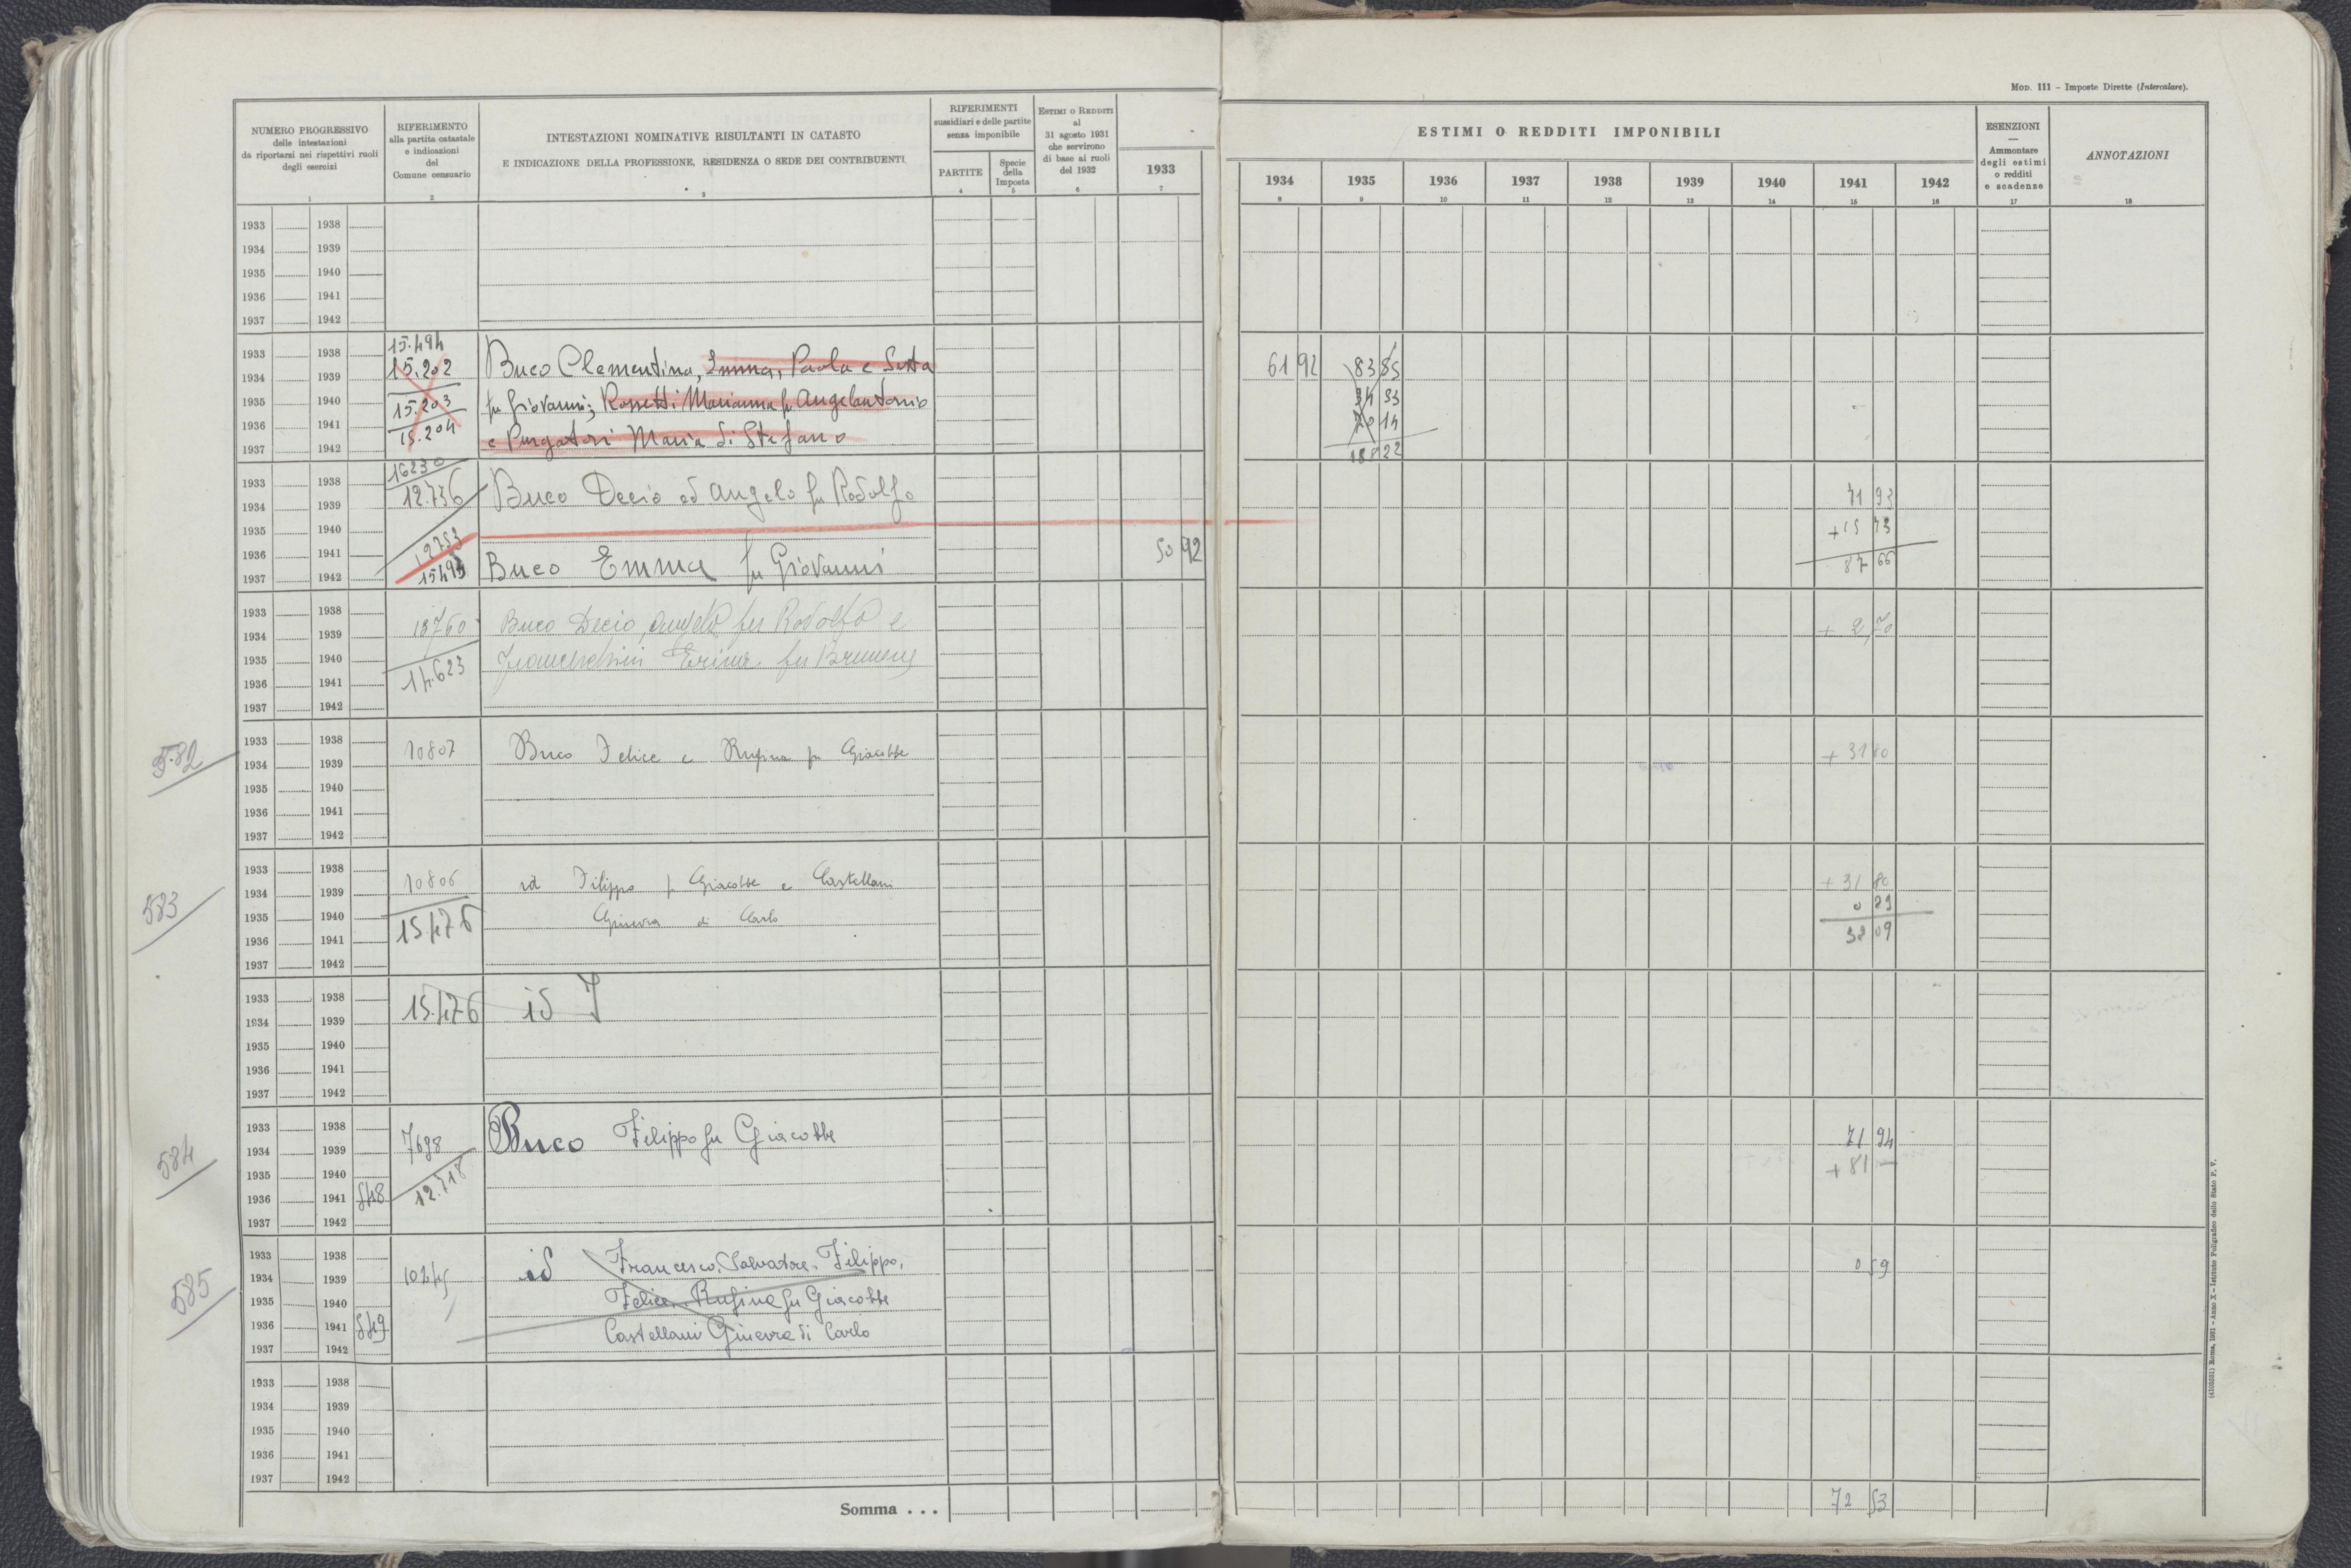 MOD. 111 – Imposte Dirette (Intercalare).
NUMERO PROGRESSIVO
delle intestazioni
da riportarsi nei rispettivi ruoli
degli esercizi
1
RIFERIMENTO
alla partita catastale
e indicazioni
del
Comune censuario
2
INTESTAZIONI NOMINATIVE RISULTANTI IN CATASTO
E INDICAZIONE DELLA PROFESSIONE, RESIDENZA O SEDE DEI CONTRIBUENTI
3
RIFERIMENTI
sussidiari e delle partite
senza imponibile
PARTITE
4
Specie
della
Imposta
5
ESTIMI O REDDITI
al
31 agosto 1931
che servirono
di base ai ruoli
del 1932
6
1933
7
ESTIMI O REDDITI IMPONIBILI
1934 1935 1936 1937 1938 1939 1940 1941 1942
8 9 10 11 12 13 14 15 16
ESENZIONI
—
Ammontare
degli estimi
o redditi
e scadenze
17
ANNOTAZIONI
18
1933 1938
1934 1939
1935 1940
1936 1941
1937 1942
15.494
1933 1938
15.202 Buco Clementina, Emma, Paola e Setta 61 92 83 85
1934 1939
1935 1940 15.203 fu Giovanni; Rossetti Marianna fu Angelantonio 34 33
1936 1941 15.204 20 14
1937 1942 e Purgatori Maria di Stefano 22
16230
1933 1938
12.736 Buco Decio ed Angelo fu Rodolfo 71 93
1934 1939
1935 1940 + 15 73
1936 1941 12753
1937 1942 Buco Emma fu Giovanni 50 92 87 66
1933 1938
1934 1939 13760 Buco Decio, Angelo fu Rodolfo e + 2 70
1935 1940
1936 1941 14.623
1937 1942
1933 1938
582 1934 1939 10807 Buco Felice e Rufina fu Giacobbe + 31 80
1935 1940
1936 1941
1937 1942
1933 1938
1934 1939 10806 id Filippo fu Giacobbe e Castellani + 31 80
583 1935 1940 Ginevra di Carlo 0 29
1936 1941 15476 32 09
1937 1942
1933 1938
1934 1939 15.476 id
1935 1940
1936 1941
1937 1942
1933 1938
584 1934 1939 7698 Buco Filippo fu Giacobbe 71 94
1935 1940 + 81 —
1936 1941 548 12.718
1937 1942
1933 1938 id Francesco, Salvatore, Filippo,
1934 1939 10245 0 59
585 1935 1940 Felice, Rufina fu Giacobbe
1936 1941 549
1937 1942 Castellani Ginevra di Carlo
1933 1938
1934 1939
1935 1940
1936 1941
1937 1942
Somma . . . 72 53
(4100531) Roma, 1931 – Anno X – Istituto Poligrafico dello Stato P. V.